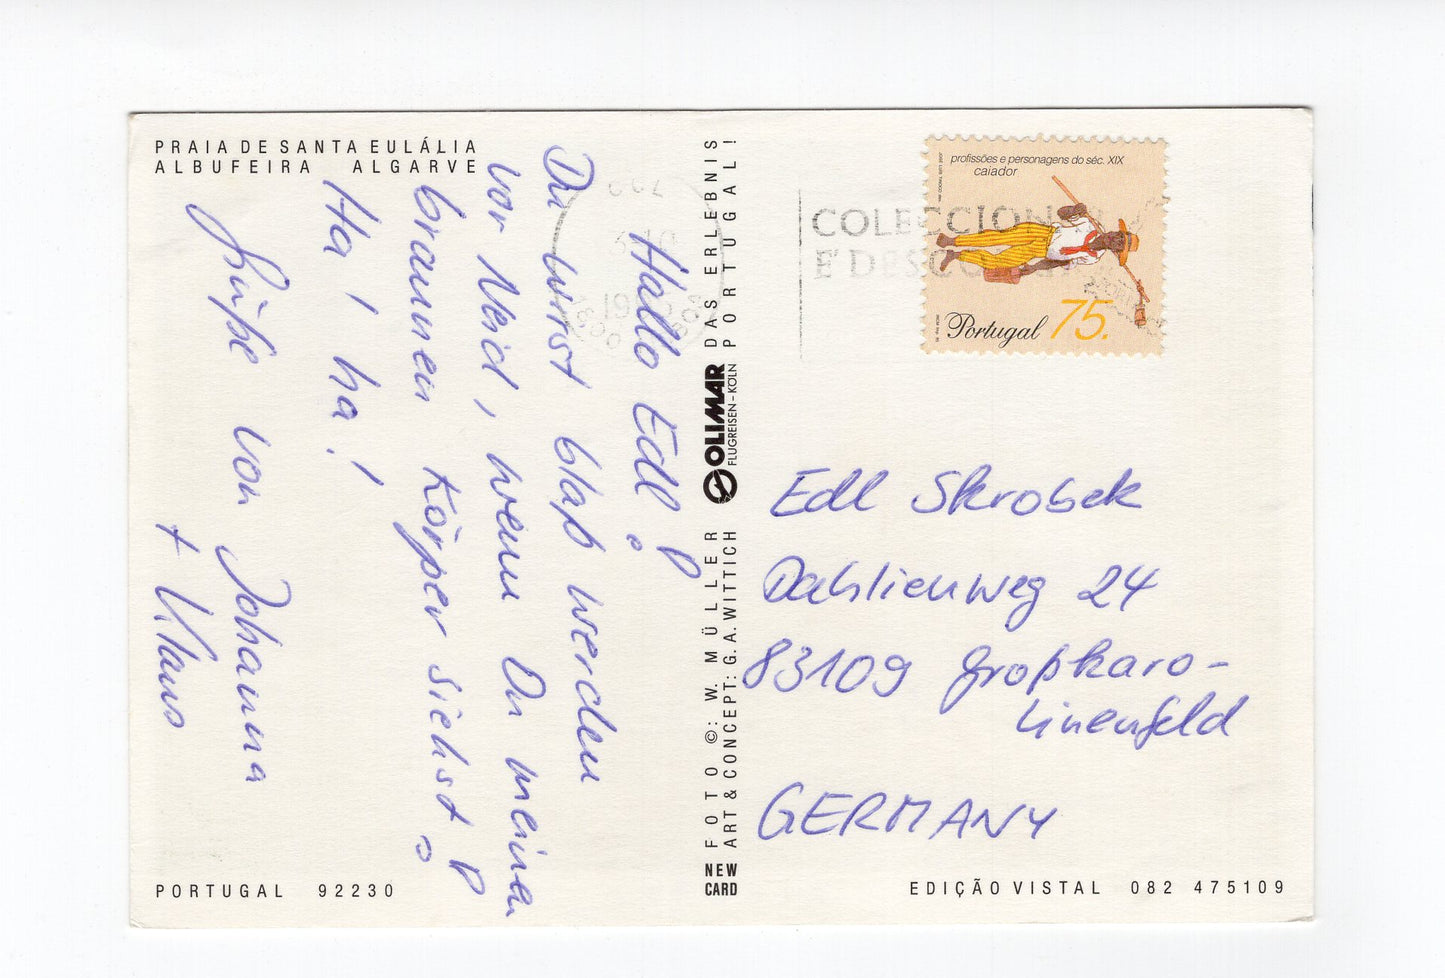 PRAIA DE SANTA EULÁLIA
ALBUFEIRA ALGARVE
Hallo Edl!
Du wirst blaß werden
vor Neid, wenn Du meinen
braunen Körper siehst!
Ha! ha!
Grüße von Johanna
+ Klaus
PORTUGAL 92230
DAS ERLEBNIS
PORTUGAL!
OLIMAR
FLUGREISEN-KÖLN
FOTO ©: W. MÜLLER
ART & CONCEPT: G. A. WITTICH
NEW
CARD
COLECCION
E DESCO
profissões e personagens do séc. XIX
caiador
Portugal 75.
Edl Skrobek
Dahlienweg 24
83109 Großkaro-
linenfeld
GERMANY
EDIÇÃO VISTAL 082 475109